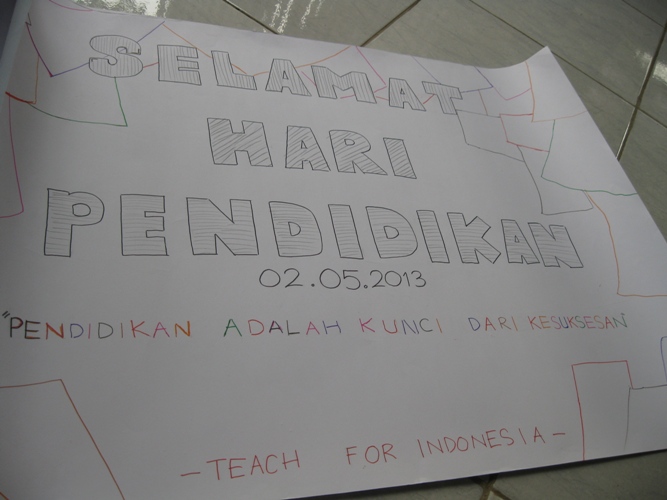 SELAMAT
HARI
PENDIDIKAN
02.05.2013
"PENDIDIKAN ADALAH KUNCI DARI KESUKSESAN"
- TEACH FOR INDONESIA -